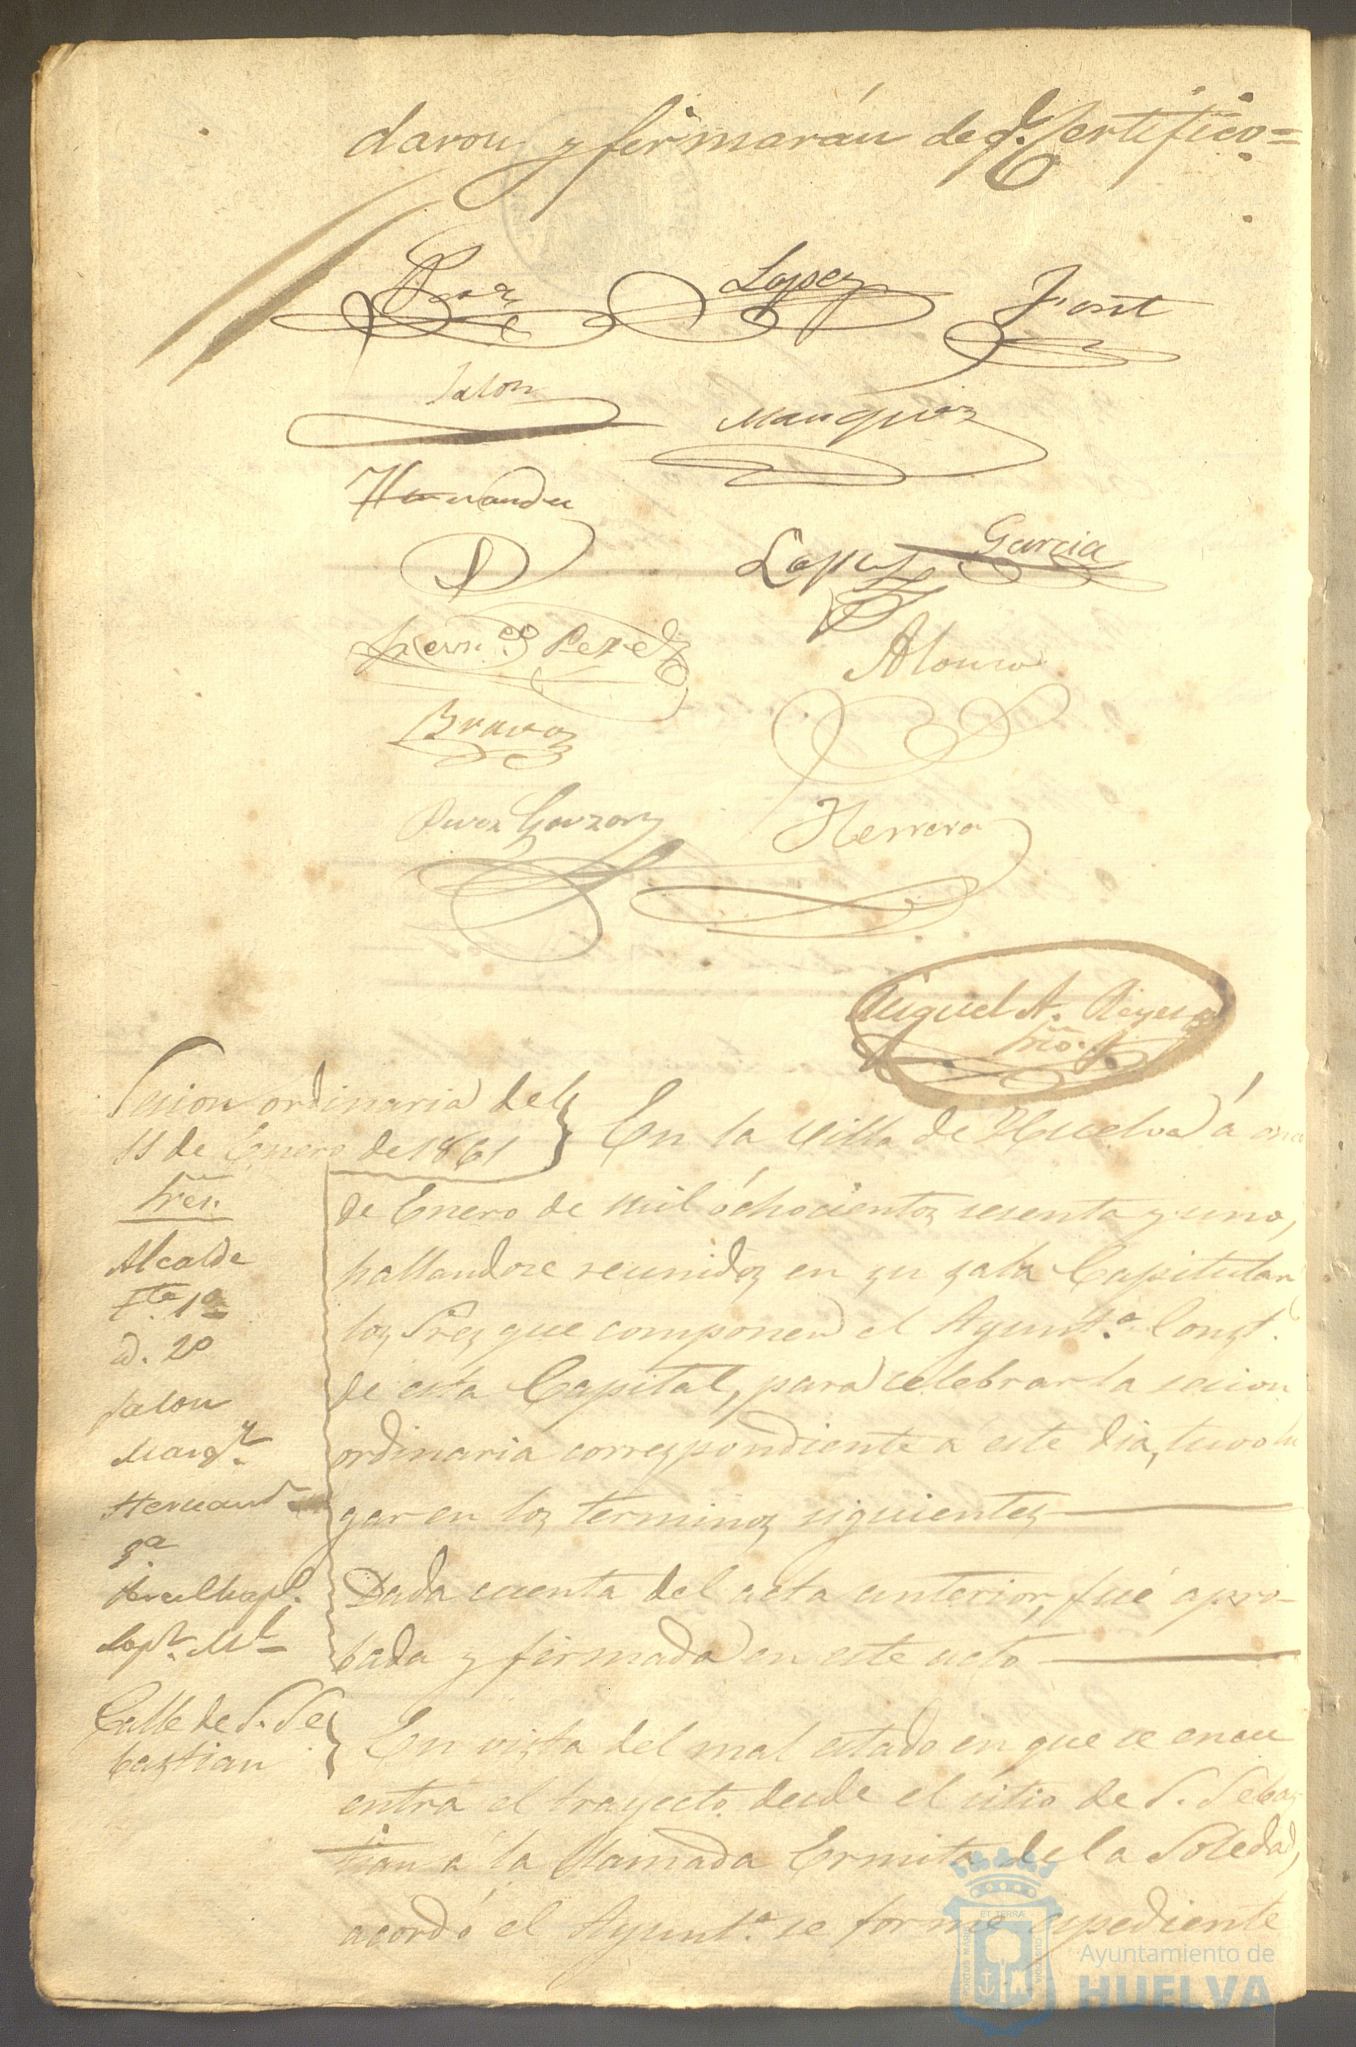 daron, y firmarán de q.e Certifico=
Lopez
Font
Jalon
Marquez
Hernandez
Lopez
Garcia
Perez
Alonso
Bravo
Perez Gonzon
Herrera
Miguel A. Reyes
Srio.
Sesion ordinaria del
11 de Enero de 1861
Sres.
Alcalde
Tte. 1º
id. 2º
Jalon
Marqz.
Hernand
Gª
Lopz. Mt
Calle de S. Se
bastian
En la villa de Huelva á once
de Enero de mil óchocientos sesenta y uno,
hallandose reunidos en su sala Capitular
los Sres que componen el Ayunt.º Const.
de esta Capital, para celebrar la sesion
ordinaria correspondiente á este dia, tuvo lu
gar en los terminos siguientes
Dada cuenta del acta anterior, fué apro-
bada y firmada en este acto
En vista del mal estado en que se encu
entra el trayecto desde el sitio de S. Sebas-
tian á la llamada Ermita de la Soledad,
acordó el Ayunt.º se forme espediente
PORTUS MARIS ET TERRÆ CUSTODIA
Ayuntamiento de
HUELVA